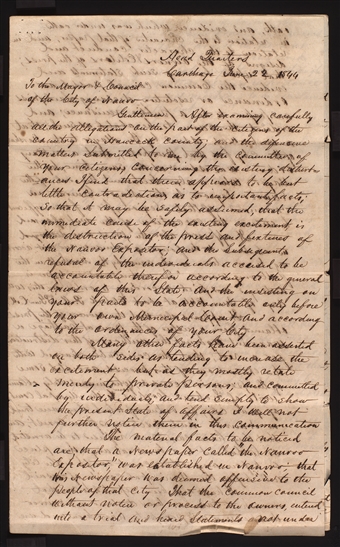 Head Quarters
Carthage June 22 1844
To the Mayor & Council
of the City of Nauvoo
Gentlemen After examining carefully
all the allegations on the part of the citizens of the
country in Hancock County, and the defensive
matters submitted to me by the Committee of
your citizens concerning the existing disturb-
ances I find that there appears to be but
little contradiction as to important facts;
So that it may be safely assumed, that the
immediate cause of the existing excitement is
the destruction of the press and fixtures of
the Nauvoo Expositor, and the subsequent
refusal of the individuals accused to be
accountable therefor according to the general
laws of this State and the insisting on
your parts to be accountable only before
your own Municipal Court and according
to the ordinances of your City
Many other facts have been asserted
on both sides as tending to increase the
excitement but as they mostly relate
merely to private persons, and committed
by individuals, and tend simply to show
the present State of affairs I will not
further notice them in this communication
The material facts to be noticed
are that a Newspaper called the Nauvoo
Expositor, was established in Nauvoo that
this Newspaper was deemed offensive to the
people of that City That the Common Council
without notice or process to the owners, entered
into a trial and heard statements not under